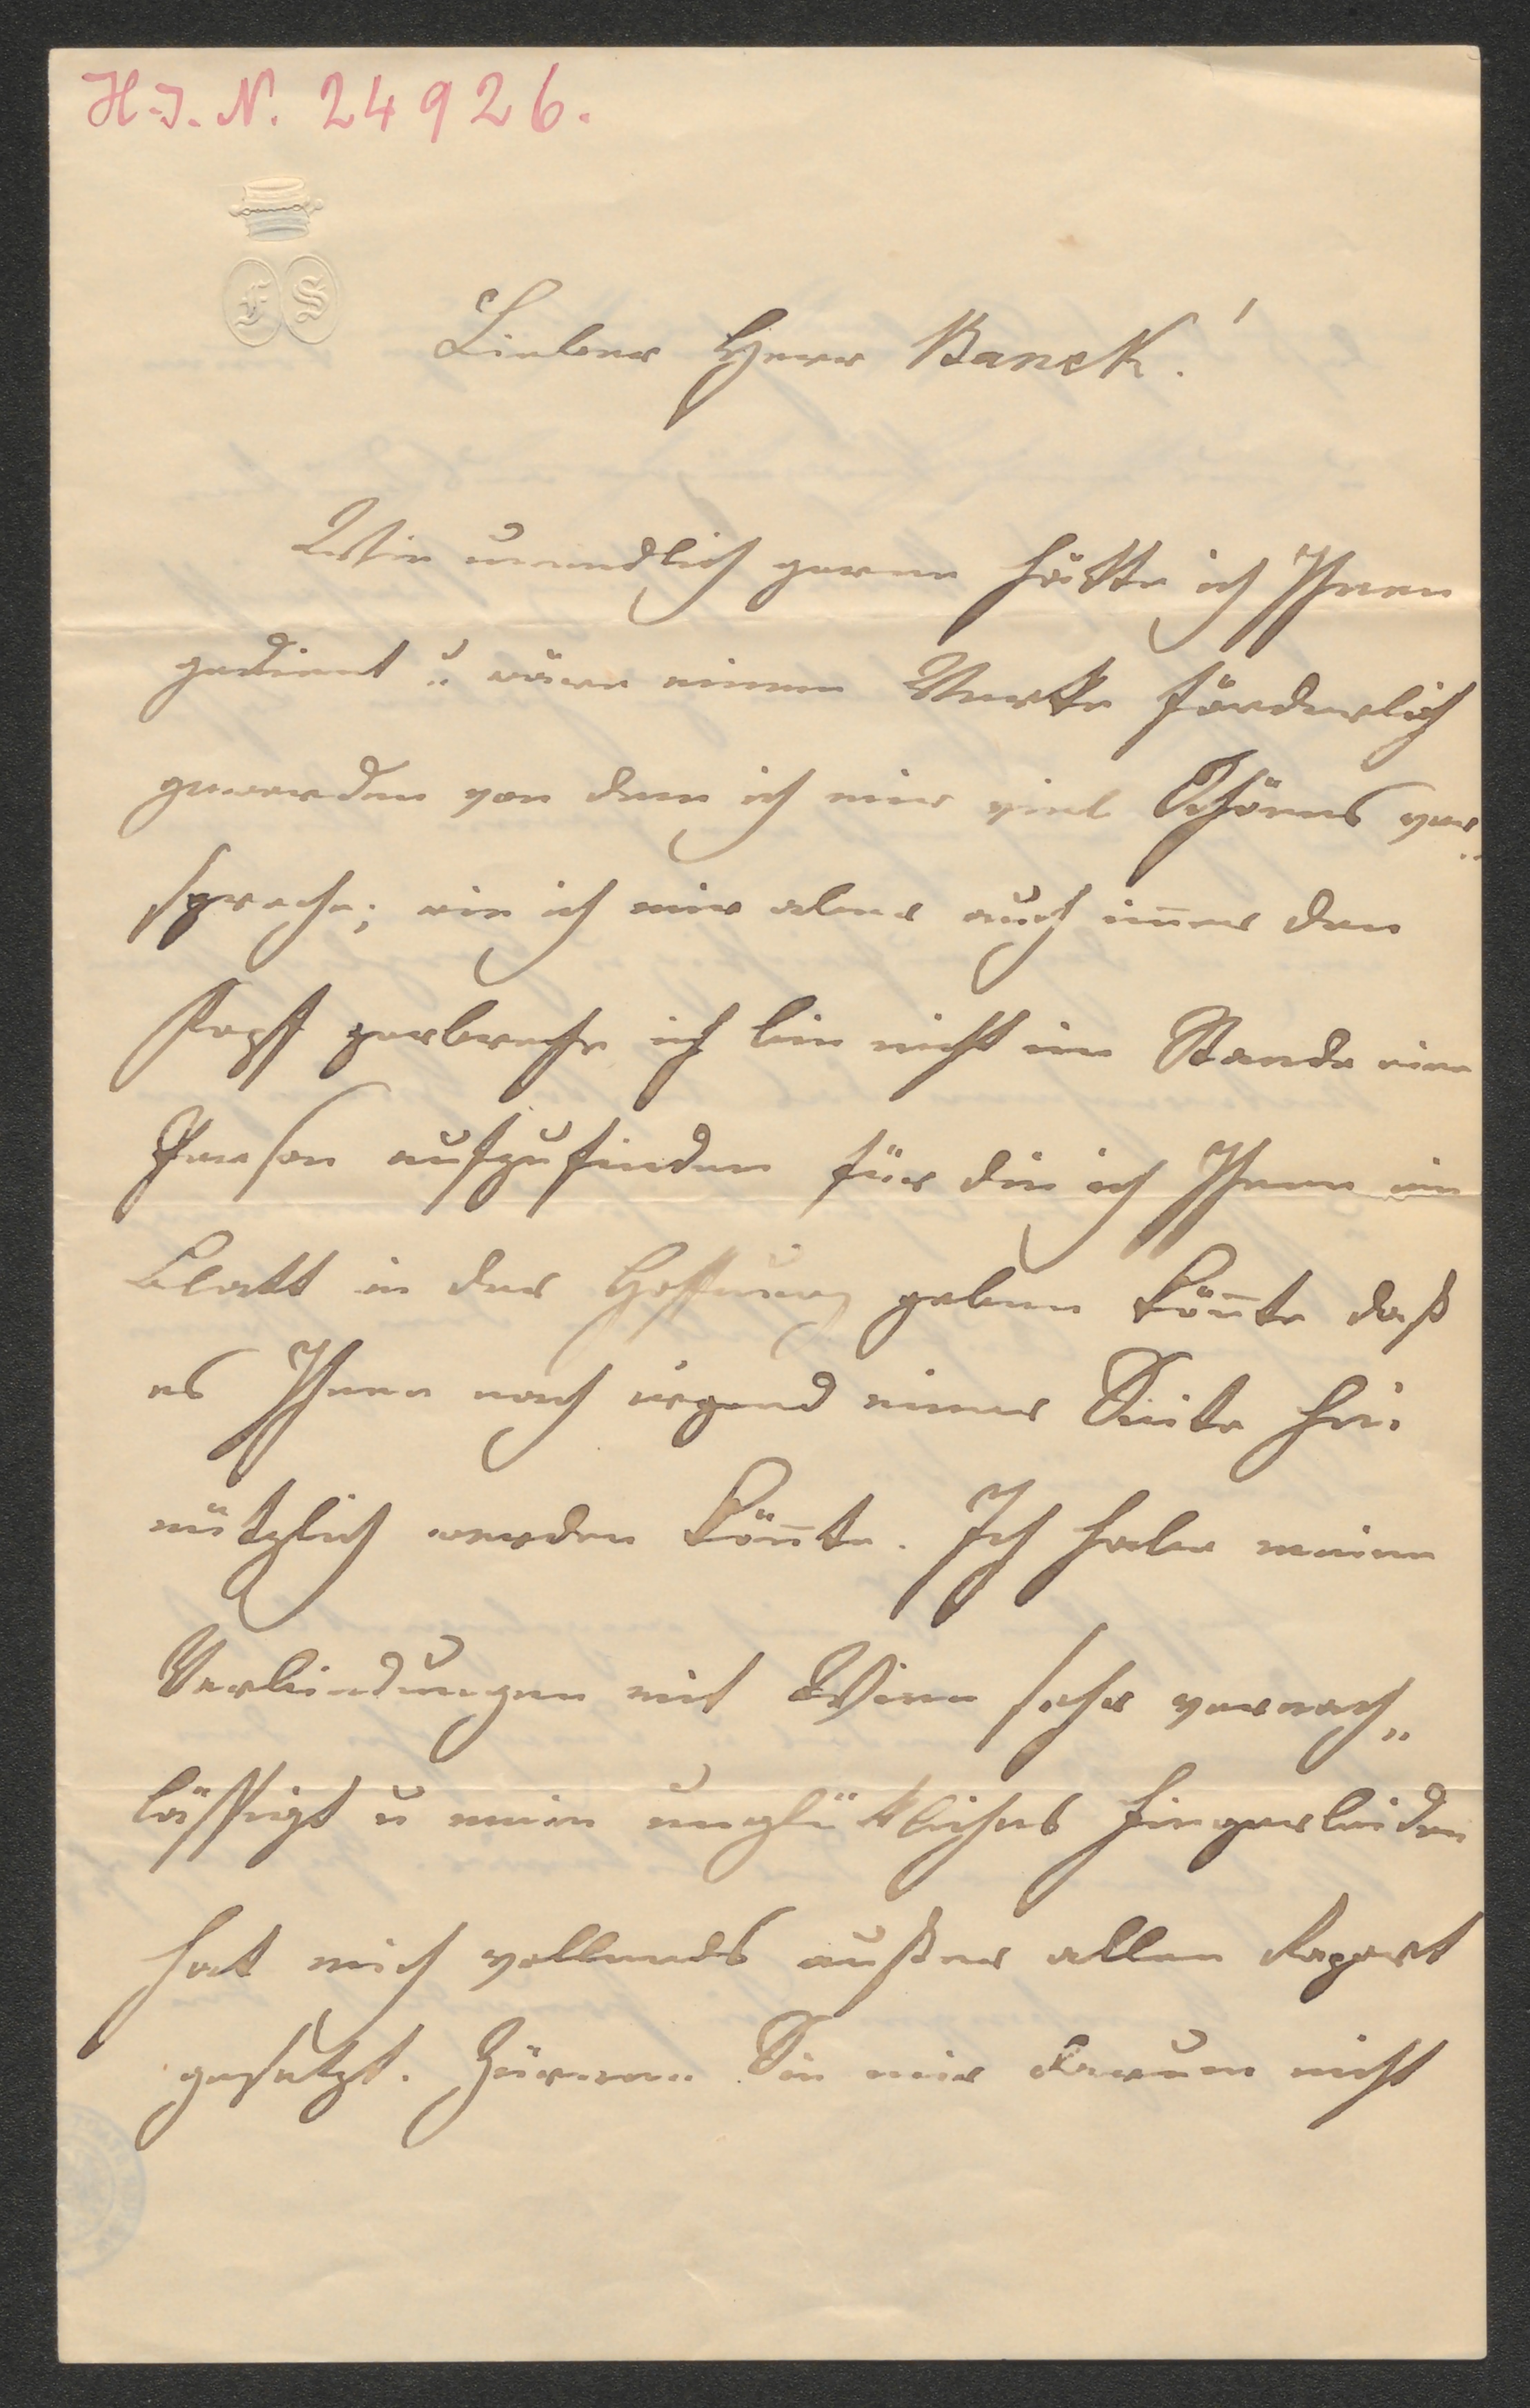 H.I.N. 24926.
F S
Lieber Herr Banck!
Wie unendlich gerne hätte ich Ihnen
gedient u. wäre einem Werke förderlich
geworden von dem ich mir viel Schönes ver„
spreche; wie ich mir aber auch im̅er den
Kopf zerbreche ich bin nicht im Stande eine
Person aufzufinden für die ich Ihnen ein
Blatt in der Hoffnung geben kön̅te daß
es Ihnen nach irgend einer Seite hin
nützlich werden kön̅te. Ich habe meine
Verbindungen mit Wien sehr vernach„
lässigt u mein unglükliches Fingerleiden
hat mich vollends außer allen Raport
gesetzt. Zürnen Sie mir darum nicht